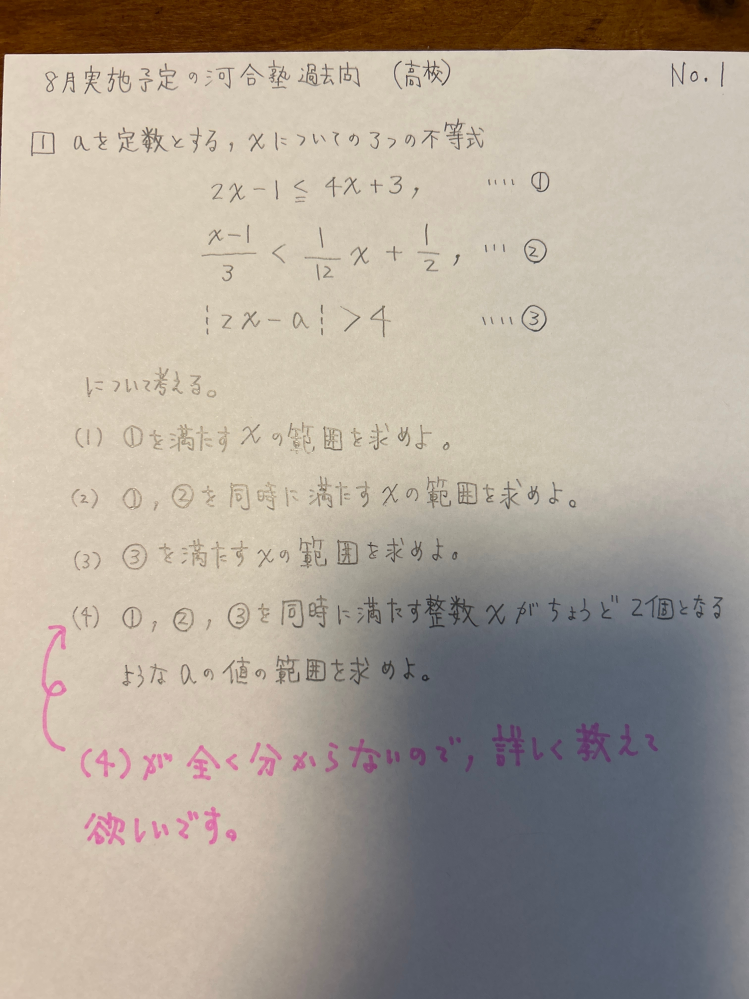 8月実施予定の河合塾過去問 (高校) No.1
1 aを定数とする, xについての3つの不等式
2x-1≦4x+3, ‥‥ ①
(x-1)/3 < 1/12 x + 1/2, … ②
¦2x-a¦>4 ‥‥ ③
について考える。
(1) ①を満たすxの範囲を求めよ。
(2) ①, ②を同時に満たすxの範囲を求めよ。
(3) ③を満たすxの範囲を求めよ。
(4) ①, ②, ③を同時に満たす整数xがちょうど2個となる
ようなaの値の範囲を求めよ。
(4)が全く分からないので, 詳しく教えて
欲しいです。